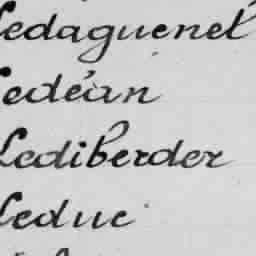 Ledaguenel
Ledéan
Lediberder
Leduc